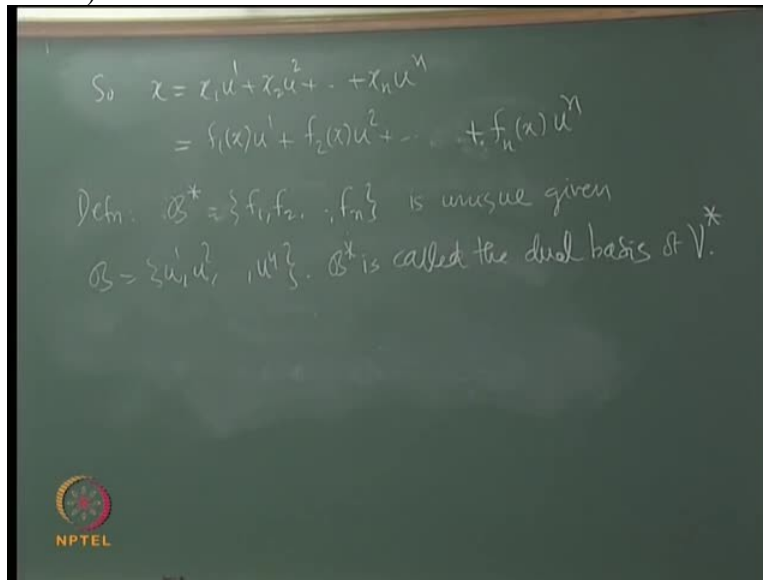 So x = x₁u¹ + x₂u² + .. + xₙuⁿ
= f₁(x)u¹ + f₂(x)u² + ... + fₙ(x)uⁿ
Defn: ℬ* = {f₁, f₂, ., fₙ} is unique given
ℬ = {u¹, u², , uⁿ}. ℬ* is called the dual basis of V*.
NPTEL